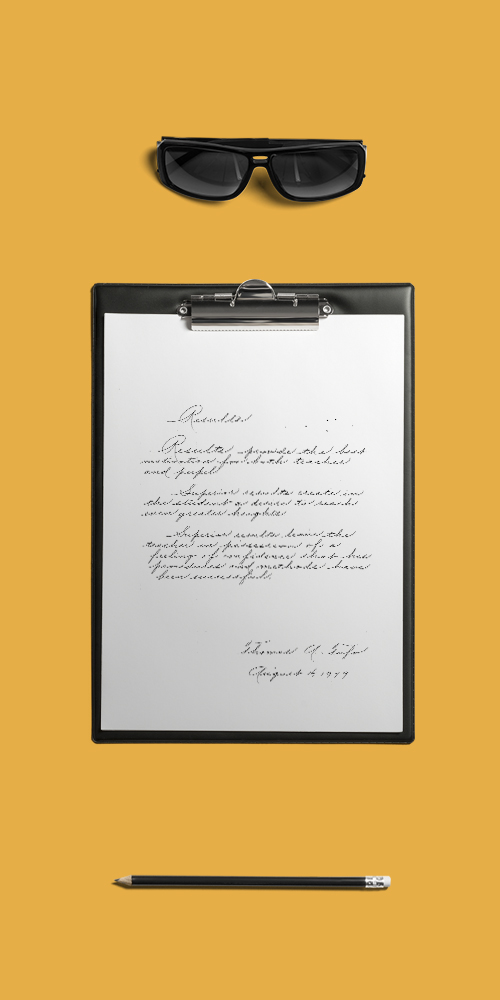 Results
Results provide the best
motivation for both teacher
and pupil.
Superior results create in
the student a desire to reach
even greater heights.
Superior results leave the
teacher in possession of a
feeling of confidence that his
procedures and methods have
been successful.
Thomas A.
August 16 1977